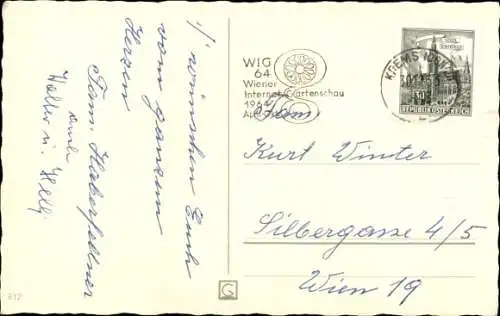 ! wünschen Euch
vom ganzen
Herzen
Fam. Haberfellner
Walter u. Helly
WIG
64
Wiener
Internat. Gartenschau
1964
KREMS
REPUBLIK ÖSTERREICH
Fam.
Kurt Winter
Silbergasse 4/5
Wien 19
G